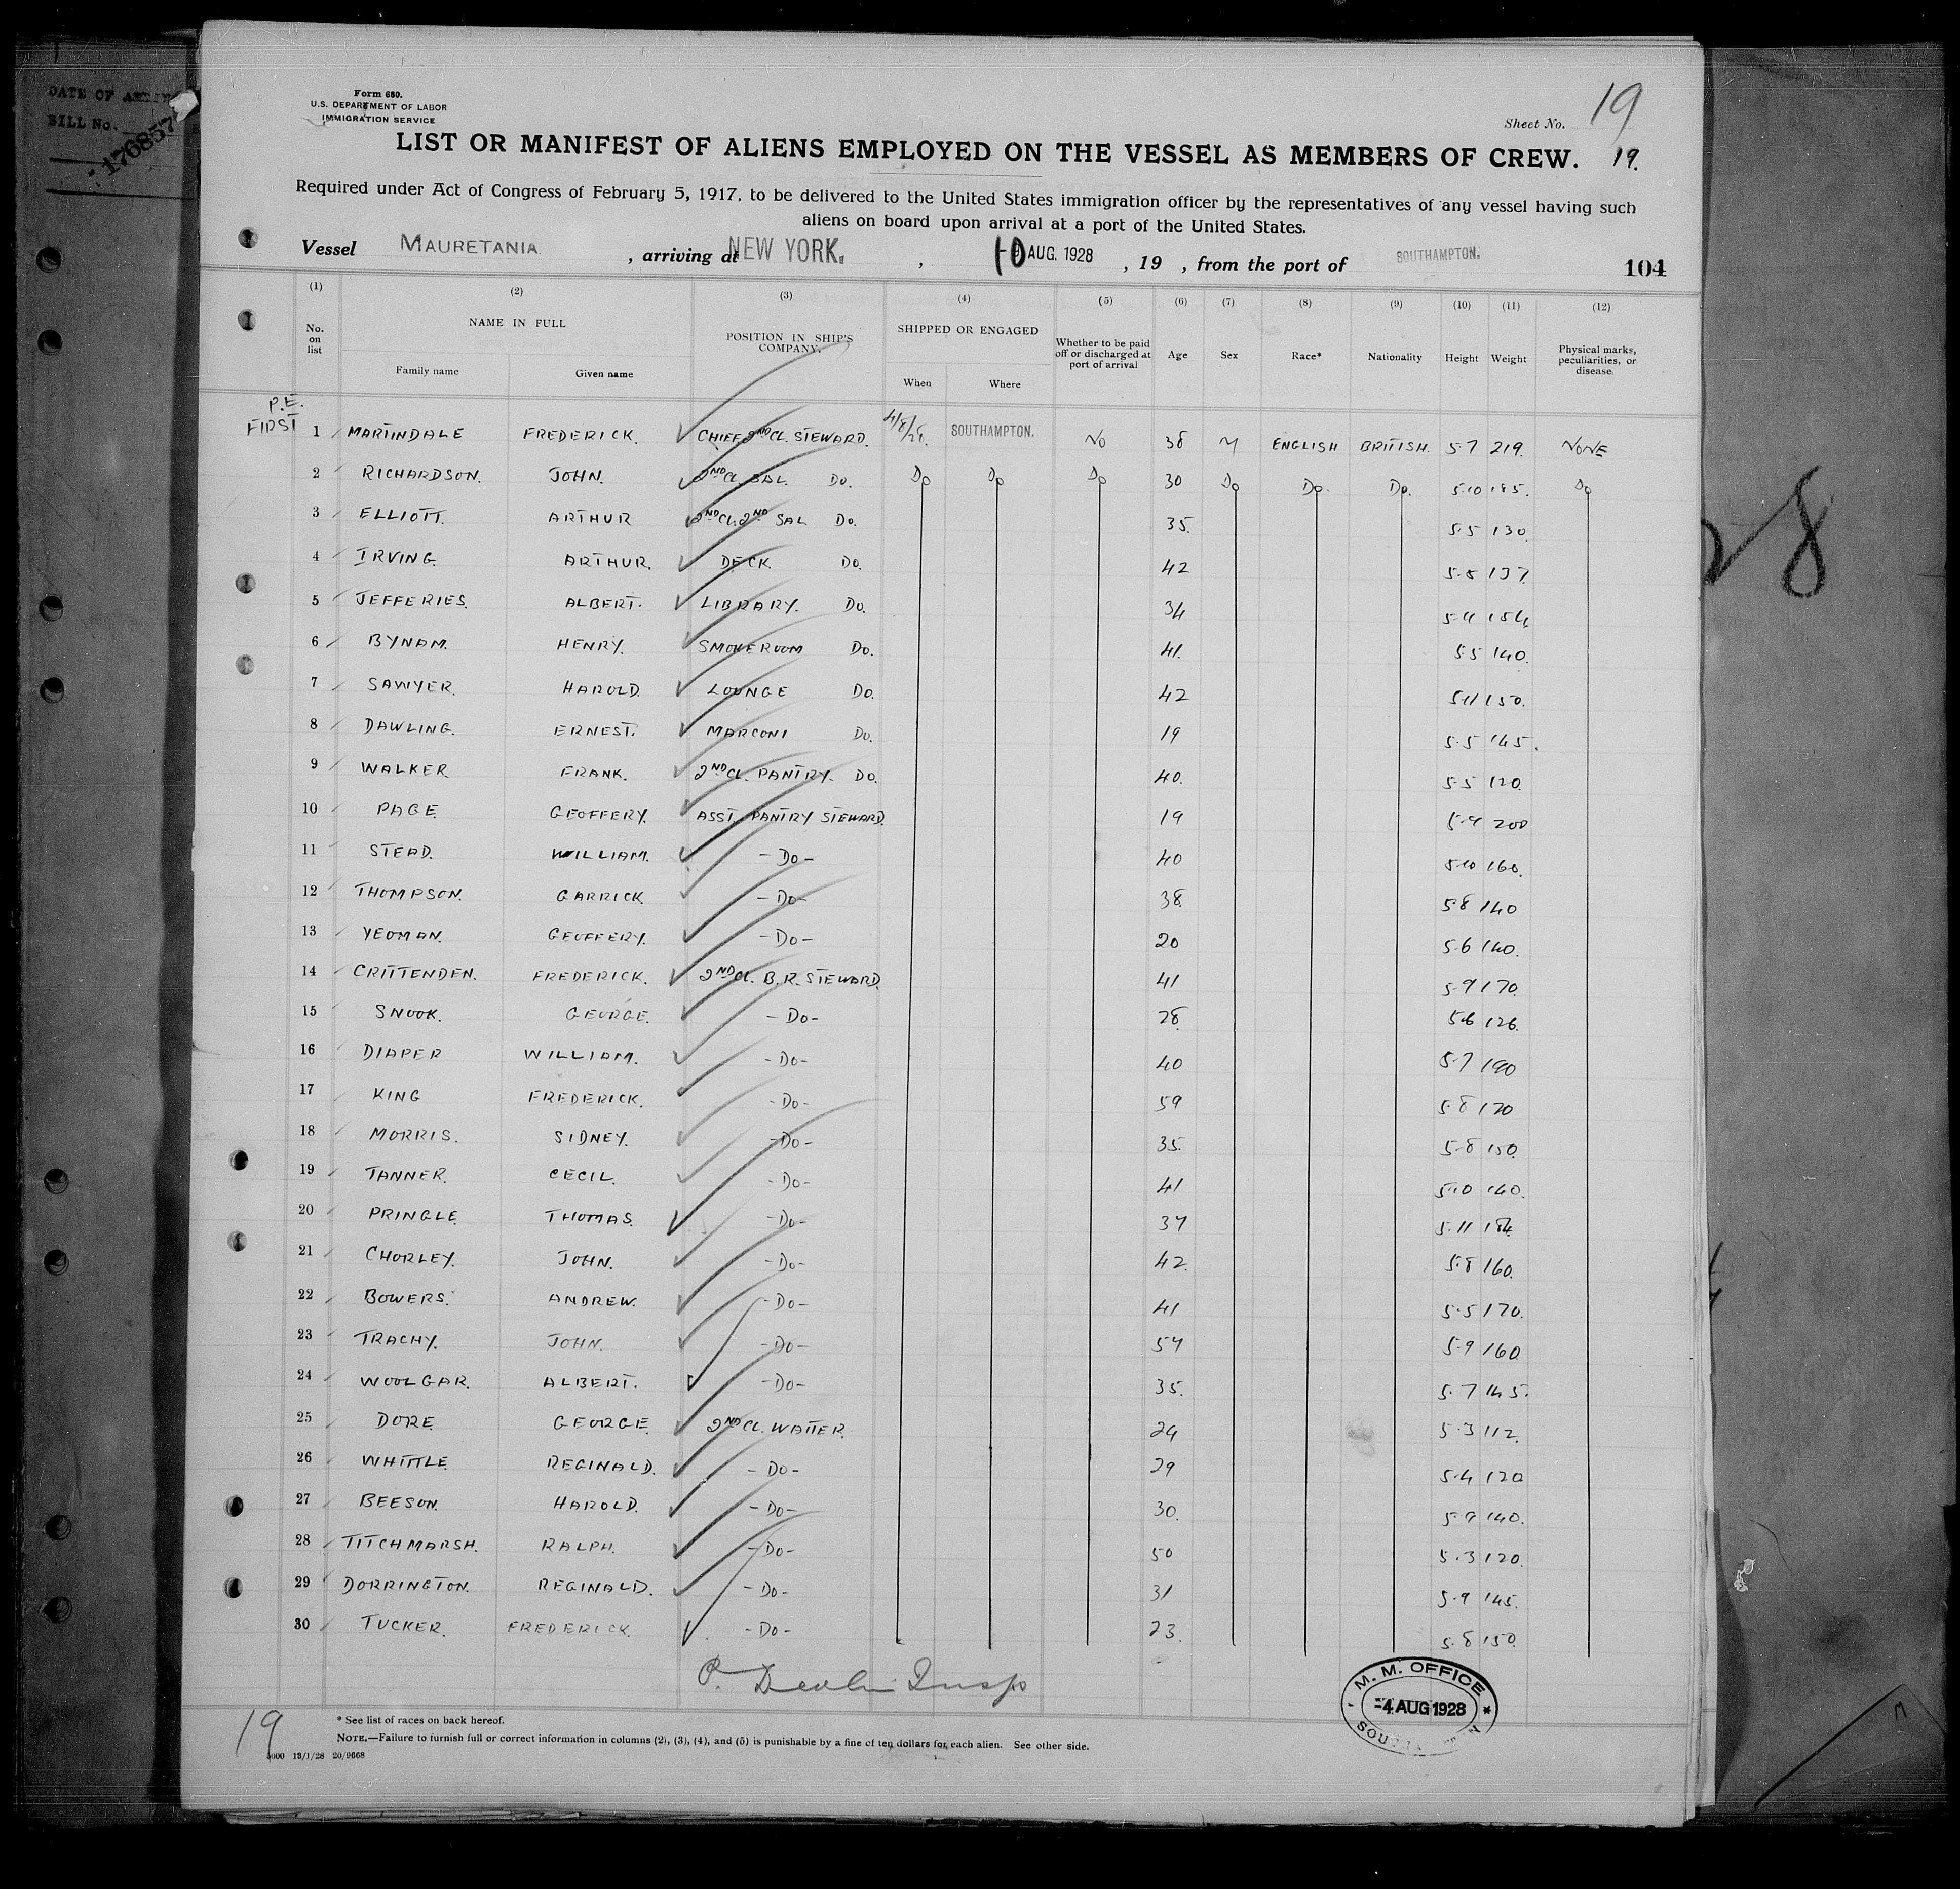 DATE OF
BILL No.
176857
Form 680.
U.S. DEPARTMENT OF LABOR
IMMIGRATION SERVICE
Sheet No. 19
LIST OR MANIFEST OF ALIENS EMPLOYED ON THE VESSEL AS MEMBERS OF CREW. 19.
Required under Act of Congress of February 5, 1917, to be delivered to the United States immigration officer by the representatives of any vessel having such
aliens on board upon arrival at a port of the United States.
Vessel MAURETANIA , arriving at NEW YORK. , 10 AUG. 1928 , 19 , from the port of SOUTHAMPTON.
104
(1) (2) (3) (4) (5) (6) (7) (8) (9) (10) (11) (12)
No. on list NAME IN FULL POSITION IN SHIP'S COMPANY. SHIPPED OR ENGAGED Whether to be paid off or discharged at port of arrival Age Sex Race* Nationality Height Weight Physical marks, peculiarities, or disease.
Family name Given name When Where
P.E.
FIRST
1 MARTINDALE FREDERICK. CHIEF 2ND CL. STEWARD. 4/8/28. SOUTHAMPTON. NO 38 M ENGLISH BRITISH. 5-7 219. NONE
2 RICHARDSON. JOHN. 2ND CL. SAL. DO. Do Do Do 30 Do Do. Do. 5-10 185. Do
3 ELLIOTT. ARTHUR 2ND CL. 2ND SAL DO. 35. 5-5 130.
4 IRVING. ARTHUR. DECK. DO. 42 5-8 137.
5 JEFFERIES. ALBERT. LIBRARY. DO. 34 154
6 BYNAM. HENRY. SMOKEROOM DO. 41. 5-5 140.
7 SAWYER. HAROLD. LOUNGE DO. 42 5-11 150.
8 DAWLING. ERNEST. MARCONI DO. 19 5-5 145.
9 WALKER FRANK. 2ND CL. PANTRY. DO. 40. 5-5 120.
10 PAGE. GEOFFERY. ASST. PANTRY STEWARD. 19 5-9 200
11 STEAD. WILLIAM. -DO- 40 5-10 160.
12 THOMPSON. GARRICK -DO- 38. 5-8 140
13 YEOMAN. GEOFFERY. -DO- 20 5-6 140.
14 CRITTENDEN. FREDERICK. 2ND CL. B.R. STEWARD. 41 5-9 170.
15 SNOOK. GEORGE. -DO- 28. 5-6 126.
16 DIAPER WILLIAM. -DO- 40 5-7 190
17 KING FREDERICK. -DO- 59 5-8 120
18 MORRIS. SIDNEY. -DO- 35. 5-8 150.
19 TANNER. CECIL. -DO- 41 5-10 140.
20 PRINGLE THOMAS. -DO- 37 5-11 184.
21 CHORLEY. JOHN. -DO- 42. 5-8 160.
22 BOWERS. ANDREW. -DO- 41 5-5 170.
23 TRACHY. JOHN. -DO- 57 5-9 160
24 WOOLGAR. ALBERT. -DO- 35. 5-7 145.
25 DORE GEORGE. 2ND CL. WAITER. 24 5-3 112.
26 WHITTLE REGINALD. -DO- 29 5-4 120
27 BEESON. HAROLD. -DO- 30. 5-9 140.
28 TITCHMARSH. RALPH. -DO- 50 5-3 120.
29 DORRINGTON. REGINALD. -DO- 31 5-9 145.
30 TUCKER. FREDERICK. -DO- 23. 5-8 150.
P. Devlin Insp
M. M. OFFICE
-4 AUG 1928
19
* See list of races on back hereof.
NOTE.—Failure to furnish full or correct information in columns (2), (3), (4), and (5) is punishable by a fine of ten dollars for each alien. See other side.
5000 13/1/28 20/9668
28